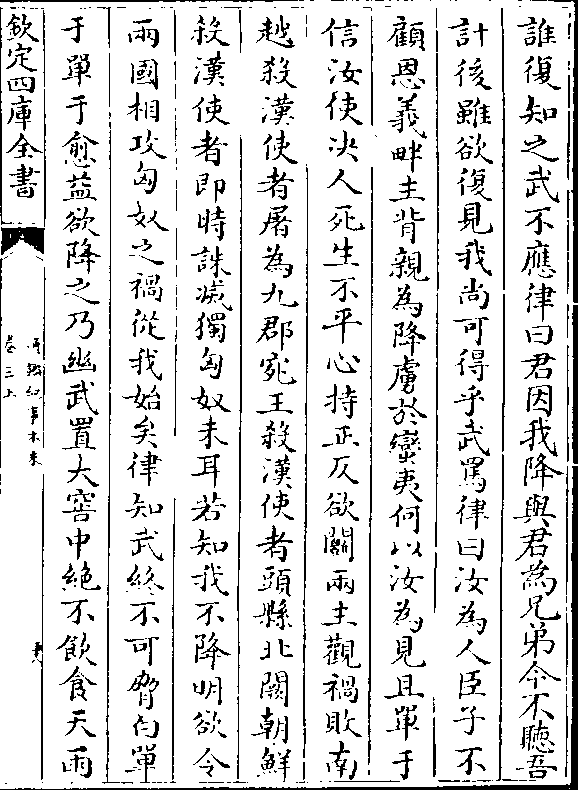 誰復知之武不應律曰君因我降與君為兄弟今不聽吾
計後雖欲復見我尚可得乎武罵律曰汝為人臣子不
顧恩義畔主背親為降虜於蠻夷何以汝為見且單于
信汝使決人死生不平心持正反欲鬭兩主觀禍敗南
越殺漢使者屠為九郡宛王殺漢使者頭縣北闕朝鮮
殺漢使者即時誅滅獨匈奴未耳若知我不降明欲令
兩國相攻匈奴之禍從我始矣律知武終不可脅白單
于單于愈益欲降之乃幽武置大窖中絶不飲食天雨
欽定四庫全書
通鑑紀事本末
卷三上